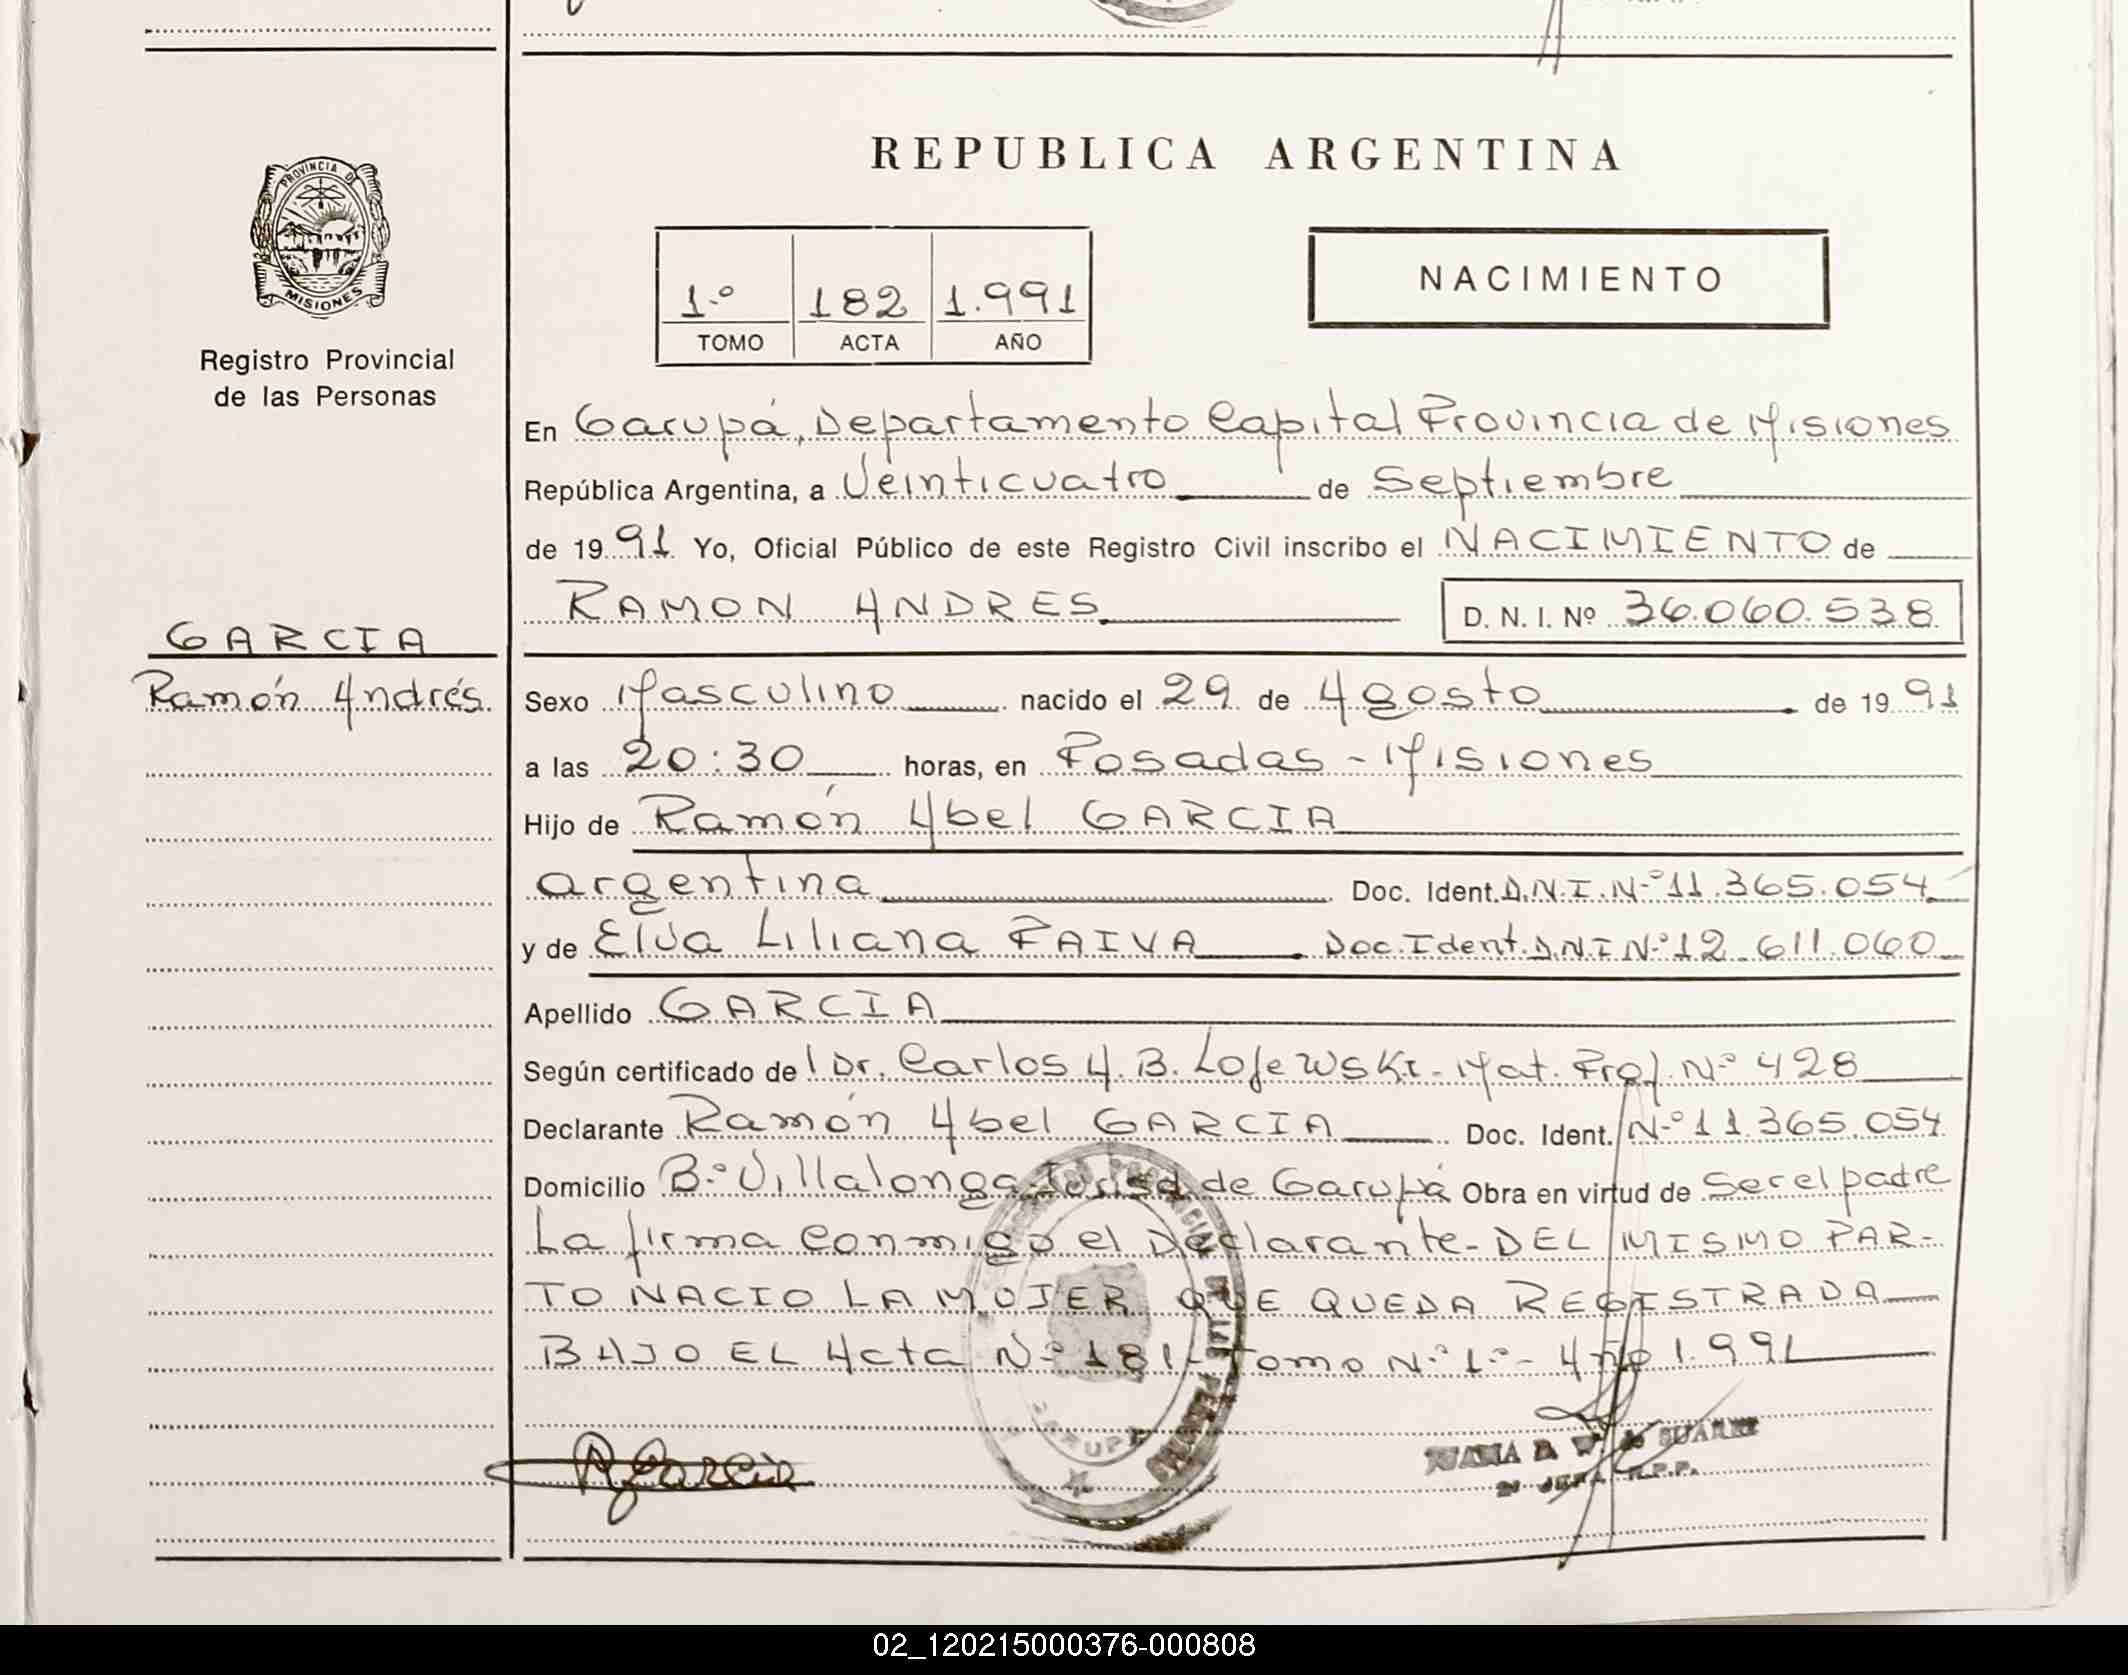 PROVINCIA DE
MISIONES
Registro Provincial
de las Personas
GARCIA
Ramón Andrés
REPUBLICA ARGENTINA
1.º 182 1.991
TOMO ACTA AÑO
NACIMIENTO
En Garupá, Departamento Capital Provincia de Misiones
República Argentina, a Veinticuatro de Septiembre
de 1991 Yo, Oficial Público de este Registro Civil inscribo el NACIMIENTO de
RAMON ANDRES D. N. I. Nº 36.060.538
Sexo Masculino nacido el 29 de Agosto de 1991
a las 20:30 horas, en Posadas - Misiones
Hijo de Ramón Abel GARCIA
argentina Doc. Ident. D.N.I. N.º 11.365.054
y de Elva Liliana PAIVA Doc. Ident. D.N.I N.º 12.611.060
Apellido GARCIA
Según certificado del Dr. Carlos A. B. Lojewski - Mat. Prof. Nº 428
Declarante Ramón Abel GARCIA Doc. Ident. N.º 11.365.054
Domicilio B.º Villalonga de Garupá Obra en virtud de Ser el padre
La firma Conmigo el Declarante - DEL MISMO PAR-
TO NACIO LA MUJER QUE QUEDA REGISTRADA
BAJO EL Acta N.º 181 - Tomo N.º 1.º - Año 1.991
R Garcia
SUAREZ
02_120215000376-000808